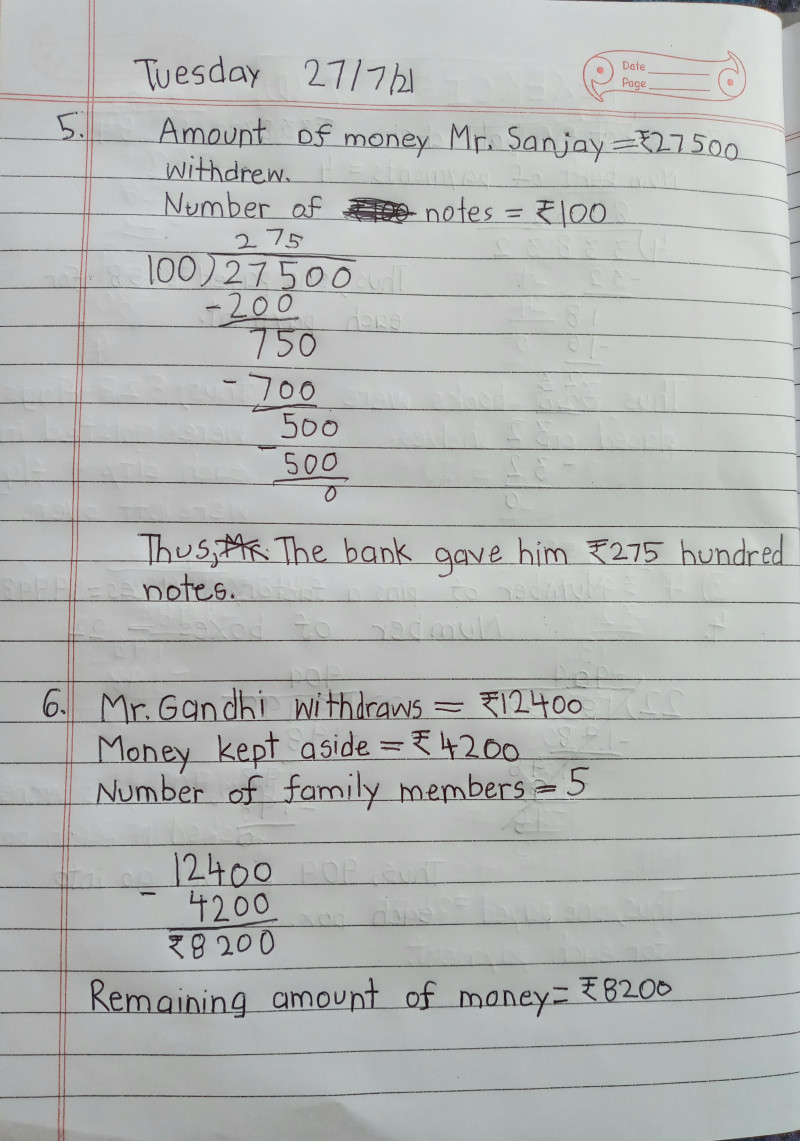 Tuesday 27/7/21
Date
Page
5. Amount of money Mr. Sanjay = ₹27500
withdrew.
Number of notes = ₹100
275
100)27500
-200
750
-700
500
-500
0
Thus, The bank gave him ₹275 hundred
notes.
6. Mr. Gandhi withdraws = ₹12400
Money kept aside = ₹4200
Number of family members = 5
12400
- 4200
₹8200
Remaining amount of money = ₹8200